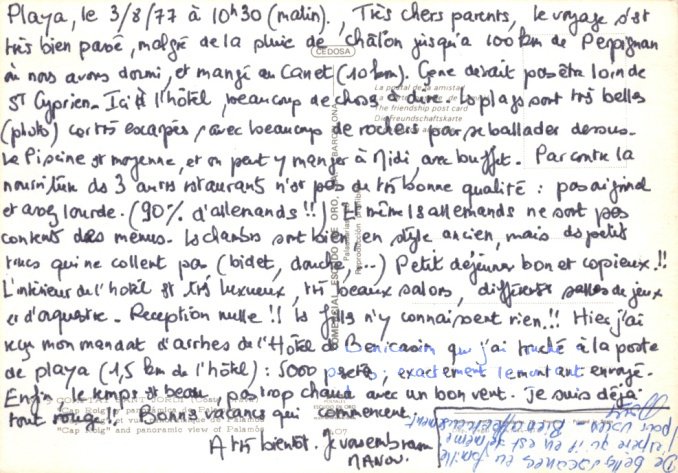 Playa, le 3/8/77 à 10h30 (matin). Très chers parents, le voyage s'est
très bien passé, malgré de la pluie de châlon jusqu'à 100 km de Perpignan
où nous avons dormi, et mangé au Canet (10 km). Ça ne devait pas être loin de
St Cyprien. Ici à l'hôtel, beaucoup de choses à dire. Les plages sont très belles
(photo) car très escarpées, avec beaucoup de rochers pour se ballader dessus.
La Piscine est moyenne, et on peut y manger à Midi, avec buffet. Par contre la
nourriture des 3 autres restaurants n'est pas de très bonne qualité : pas
et assez lourde. (90% d'allemands !! Et même les allemands ne sont pas
contents des menus. Les chambres sont bien, en style ancien, mais des petits
trucs qui ne collent pas (bidet, douche, ...) Petit déjeuner bon et copieux.!!
L'intérieur de l'hôtel est très luxueux, très beaux salons, différentes salles de jeux
et d'aquastre. Reception nulle !! les filles n'y connaissent rien.!! Hier j'ai
reçu mon mandat d'arrhes de l'Hôtel de Benicasin que j'ai touché à la poste
de playa (1,5 km de l'hôtel) : 5000 pesetas, exactement le montant envoyé.
Enfin le temps est beau, pas trop chaud avec un bon vent. Je suis déjà
tout rouge !! Bonnes vacances qui commencent.
A très bientôt. Je vous embrasse
MANOU.
De belles vacances en famille
j'espère qu'il en est de même
pour vous. Bien affectueusement
CEDOSA
La postal de la amistad
The friendship post card
Die Freundschaftskarte
COMERCIAL ESCUDO DE ORO, S.A.
BARCELONA
Reproducción prohibida
"Cap Roig" and panoramic view of Palamós